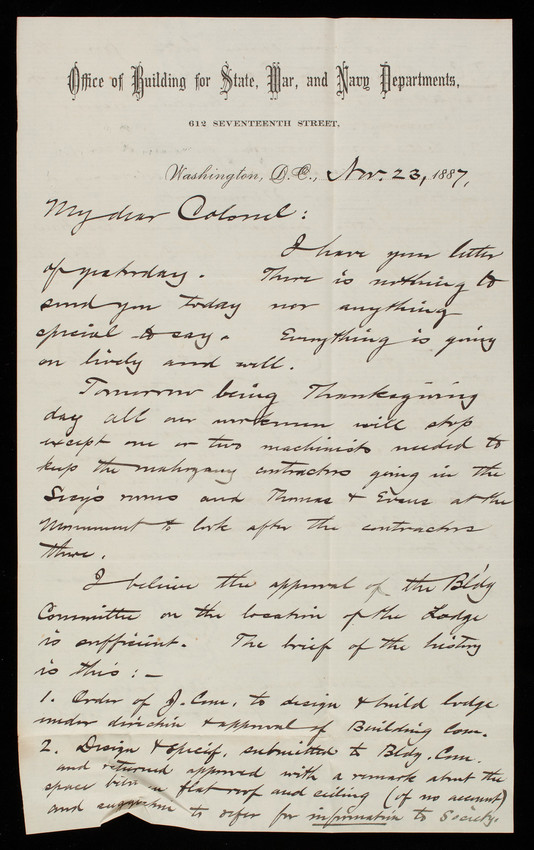 Office of Building for State, War, and Navy Departments,
612 SEVENTEENTH STREET.
Washington, D.C., Nov. 23, 1887,
My dear Colonel:
I have your letter
of yesterday. There is nothing to
send you today nor anything
special to say. Everything is going
on lively and well.
Tomorrow being Thanksgiving
day all our workmen will stop
except one or two machinists needed to
keep the mahogany contractors going in the
Secy's rooms and Thomas & Evans at the
Monument to look after the contractors
there.
I believe the approval of the Bldg
Committee on the location of the Lodge
is sufficient. The brief of the history
is this: -
1. Order of J. Com. to design & build lodge
under direction & approval of Building Com.
2. Design & specif. submitted to Bldg. Com.
and returned approved with a remark about the
space betn flat roof and ceiling (of no account)
and suggestion to refer for information to Society.